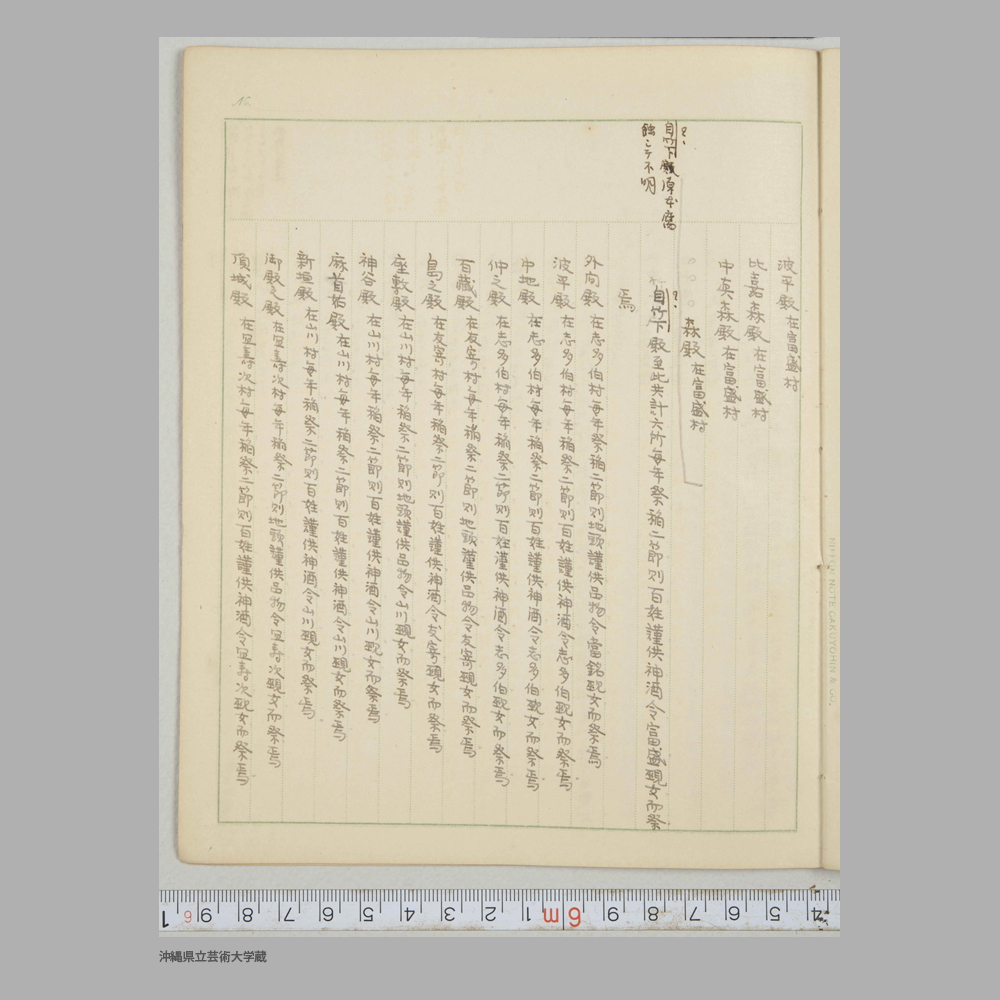 波平殿 在富盛村
比嘉森殿 在富盛村
中英森殿 在富盛村
○○○森殿 在富盛村
自竹下殿原本腐
蝕シテ不明
自竹下殿至此共計六所毎年祭稲二節則百姓謹供神酒令富盛覡女而祭
焉
外向殿 在志多伯村毎年祭稲二節則地頭謹供品物令當銘覡女而祭焉
波平殿 在志多伯村毎年稲祭二節則百姓謹供神酒令志多伯覡女而祭焉
中地殿 在志多伯村毎年稲祭二節則百姓謹供神酒令志多伯覡女而祭焉
仲之殿 在志多伯村毎年稲祭二節則百姓謹供神酒令志多伯覡女而祭焉
百藏殿 在友寄村毎年稲祭二節則地頭謹供品物令友寄覡女而祭焉
島之殿 在友寄村毎年稲祭二節則百姓謹供神酒令友寄覡女而祭焉
座敷殿 在山川村毎年稲祭二節則地頭謹供品物令山川覡女而祭焉
神谷殿 在山川村毎年稲祭二節則百姓謹供神酒令山川覡女而祭焉
麻首姑殿 在山川村毎年稲祭二節則百姓謹供神酒令山川覡女而祭焉
新垣殿 在山川村毎年稲祭二節則百姓謹供神酒令山川覡女而祭焉
御殿之殿 在宜壽次村毎年稲祭二節則地頭謹供品物令宜壽次覡女而祭焉
頂城殿 在宜壽次村毎年稲祭二節則百姓謹供神酒令宜壽次覡女而祭焉
No.
NIPPON NOTE GAKUYOHIN & CO.
1 6 9 8 7 6 5 4 3 2 1 6m 9 8 7 6 5 4
沖縄県立芸術大学蔵